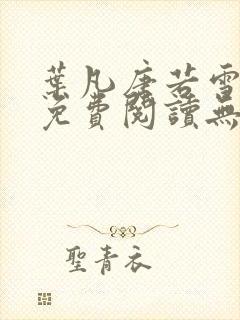 葉凡唐若雪
免費閱讀無
聖青衣